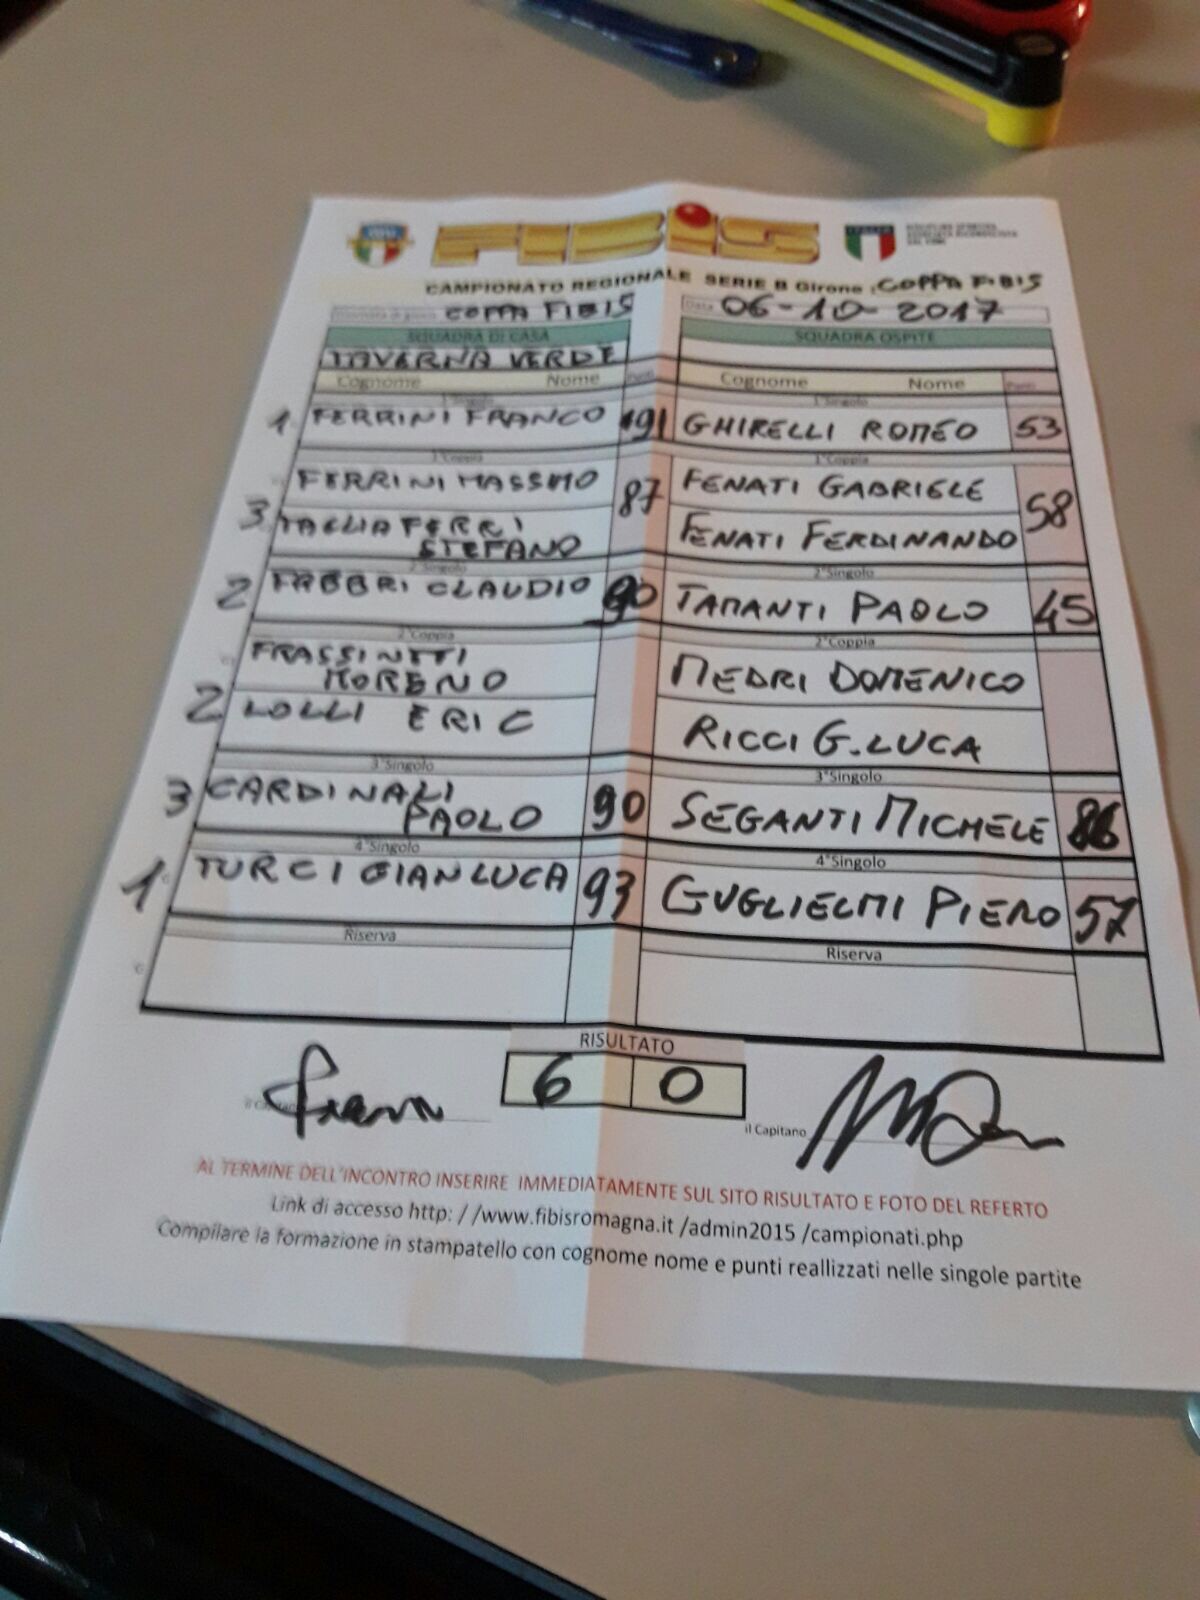 FIBiS
ITALIA
CAMPIONATO REGIONALE SERIE B Girone : COPPA FIBIS
COPPA FIBIS Data 06-10-2017
SQUADRA DI CASA SQUADRA OSPITE
TAVERNA VERDE
Cognome Nome Punti Cognome Nome Punti
1°Singolo 1°Singolo
1 FERRINI FRANCO 91 GHIRELLI ROMEO 53
1°Coppia 1°Coppia
FERRINI MASSIMO 87 FENATI GABRIELE 58
3 TAGLIAFERRI
STEFANO FENATI FERDINANDO
2°Singolo 2°Singolo
2 FABBRI CLAUDIO 90 TAMANTI PAOLO 45
2°Coppia 2°Coppia
FRASSINETI
MORENO MEDRI DOMENICO
2 LOLLI ERIC RICCI G.LUCA
3°Singolo 3°Singolo
3 CARDINALI
PAOLO 90 SEGANTI MICHELE 86
4°Singolo 4°Singolo
1 TURCI GIANLUCA 93 GUGLIELMI PIERO 57
Riserva Riserva
RISULTATO
6 0
il Capitano il Capitano
AL TERMINE DELL'INCONTRO INSERIRE IMMEDIATAMENTE SUL SITO RISULTATO E FOTO DEL REFERTO
Link di accesso http: / /www.fibisromagna.it /admin2015 /campionati.php
Compilare la formazione in stampatello con cognome nome e punti reallizzati nelle singole partite